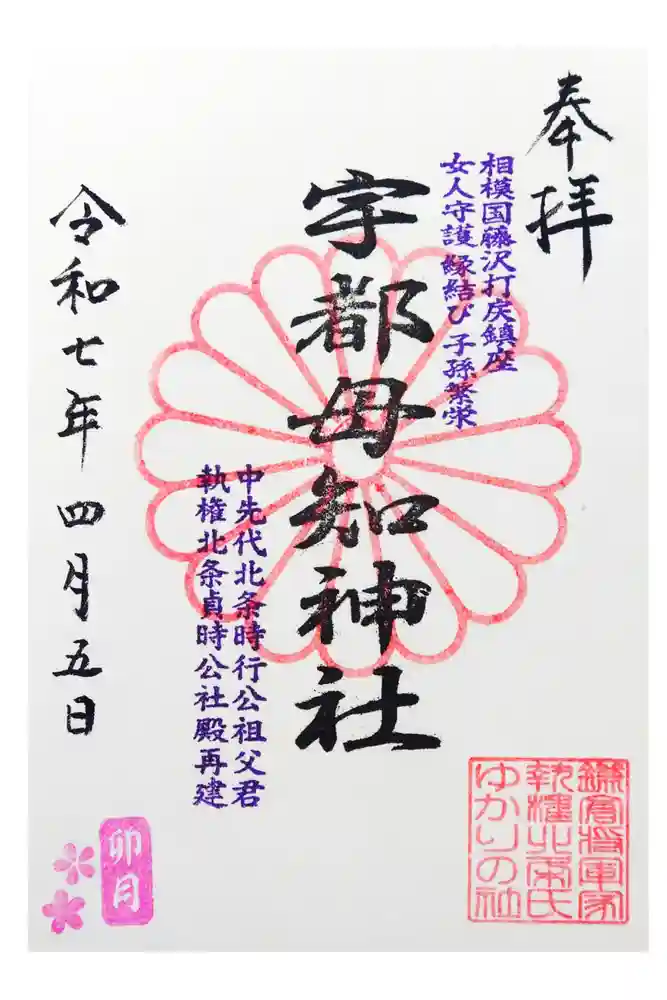 奉拝
相模国藤沢打戻鎮座
女人守護 縁結び 子孫繁栄
宇都母知神社
中先代北条時行公祖父君
執権北条貞時公社殿再建
令和七年 四月五日
鎌倉将軍家
執権北条氏
ゆかりの社
卯月